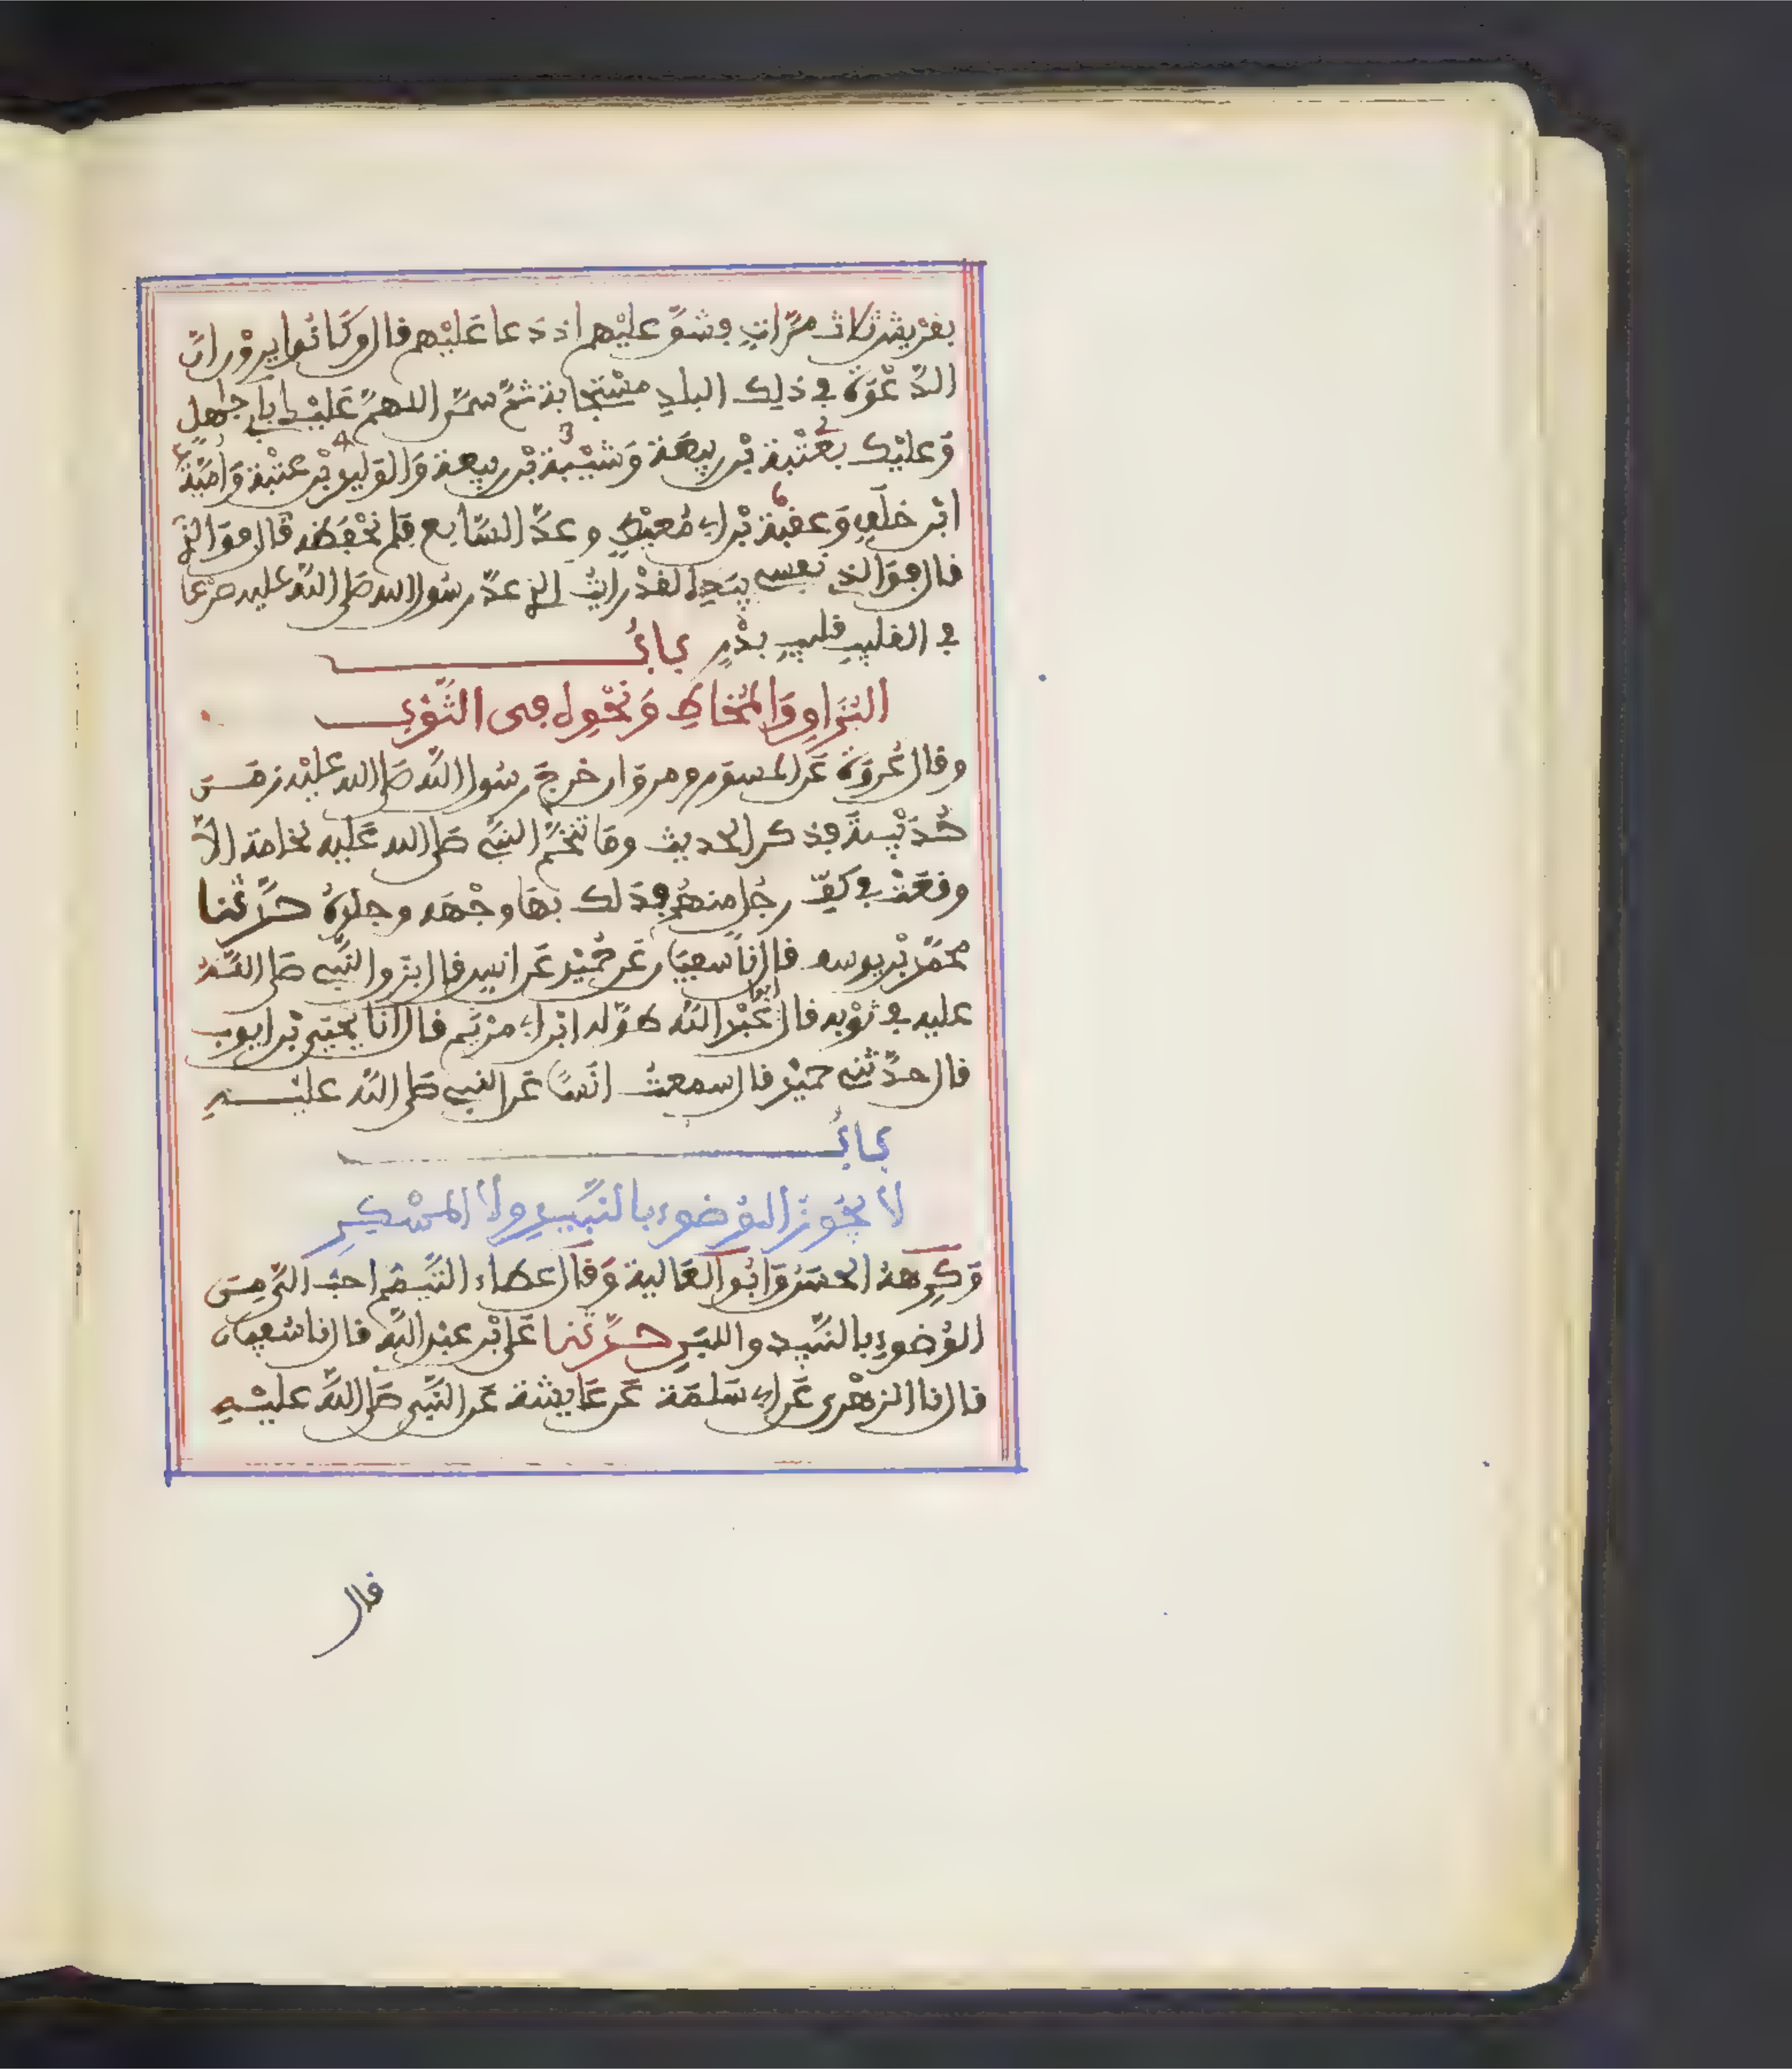 بقريش ثلاث مرات وشق عليهم اذ دعا عليهم قال وكانوا يرون ان
الدعوة في ذلك البلد مستجابة ثم سمى اللهم عليك بابي جهل
وعليك بعتبة بن ربيعة وشيبة بن ربيعة والوليد بن عتبة وامية
ابن خلف وعقبة بن ابي معيط وعد السابع فلم نحفظه قال فوالذي
قال فوالذي نفسي بيده لقد رايت الذين عد رسول الله صلى الله عليه صرعا
في القليب قليب بدر باب
البزاق والمخاط ونحوه في الثوب
وقال عروة عن المسور ومروان خرج رسول الله صلى الله عليه زمن
حديبية فذكر الحديث وما تنخم النبي صلى الله عليه نخامة الا
وقعت في كف رجل منهم فدلك بها وجهه وجلده حدثنا
محمد بن يوسف قال نا سفيان عن حميد عن انس قال بزق النبي صلى الله
عليه في ثوبه قال ابو عبد الله طوله ابن ابي مريم قال انا يحيى بن ايوب
قال حدثني حميد قال سمعت انسا عن النبي صلى الله عليه
باب
لا يجوز الوضوء بالنبيذ ولا المسكر
وكرهه الحسن وابو العالية وقال عطاء التيمم احب الي من
الوضوء بالنبيذ واللبن حدثنا علي بن عبد الله قال نا سفيان
قال نا الزهري عن ابي سلمة عن عايشة عن النبي صلى الله عليه
قال